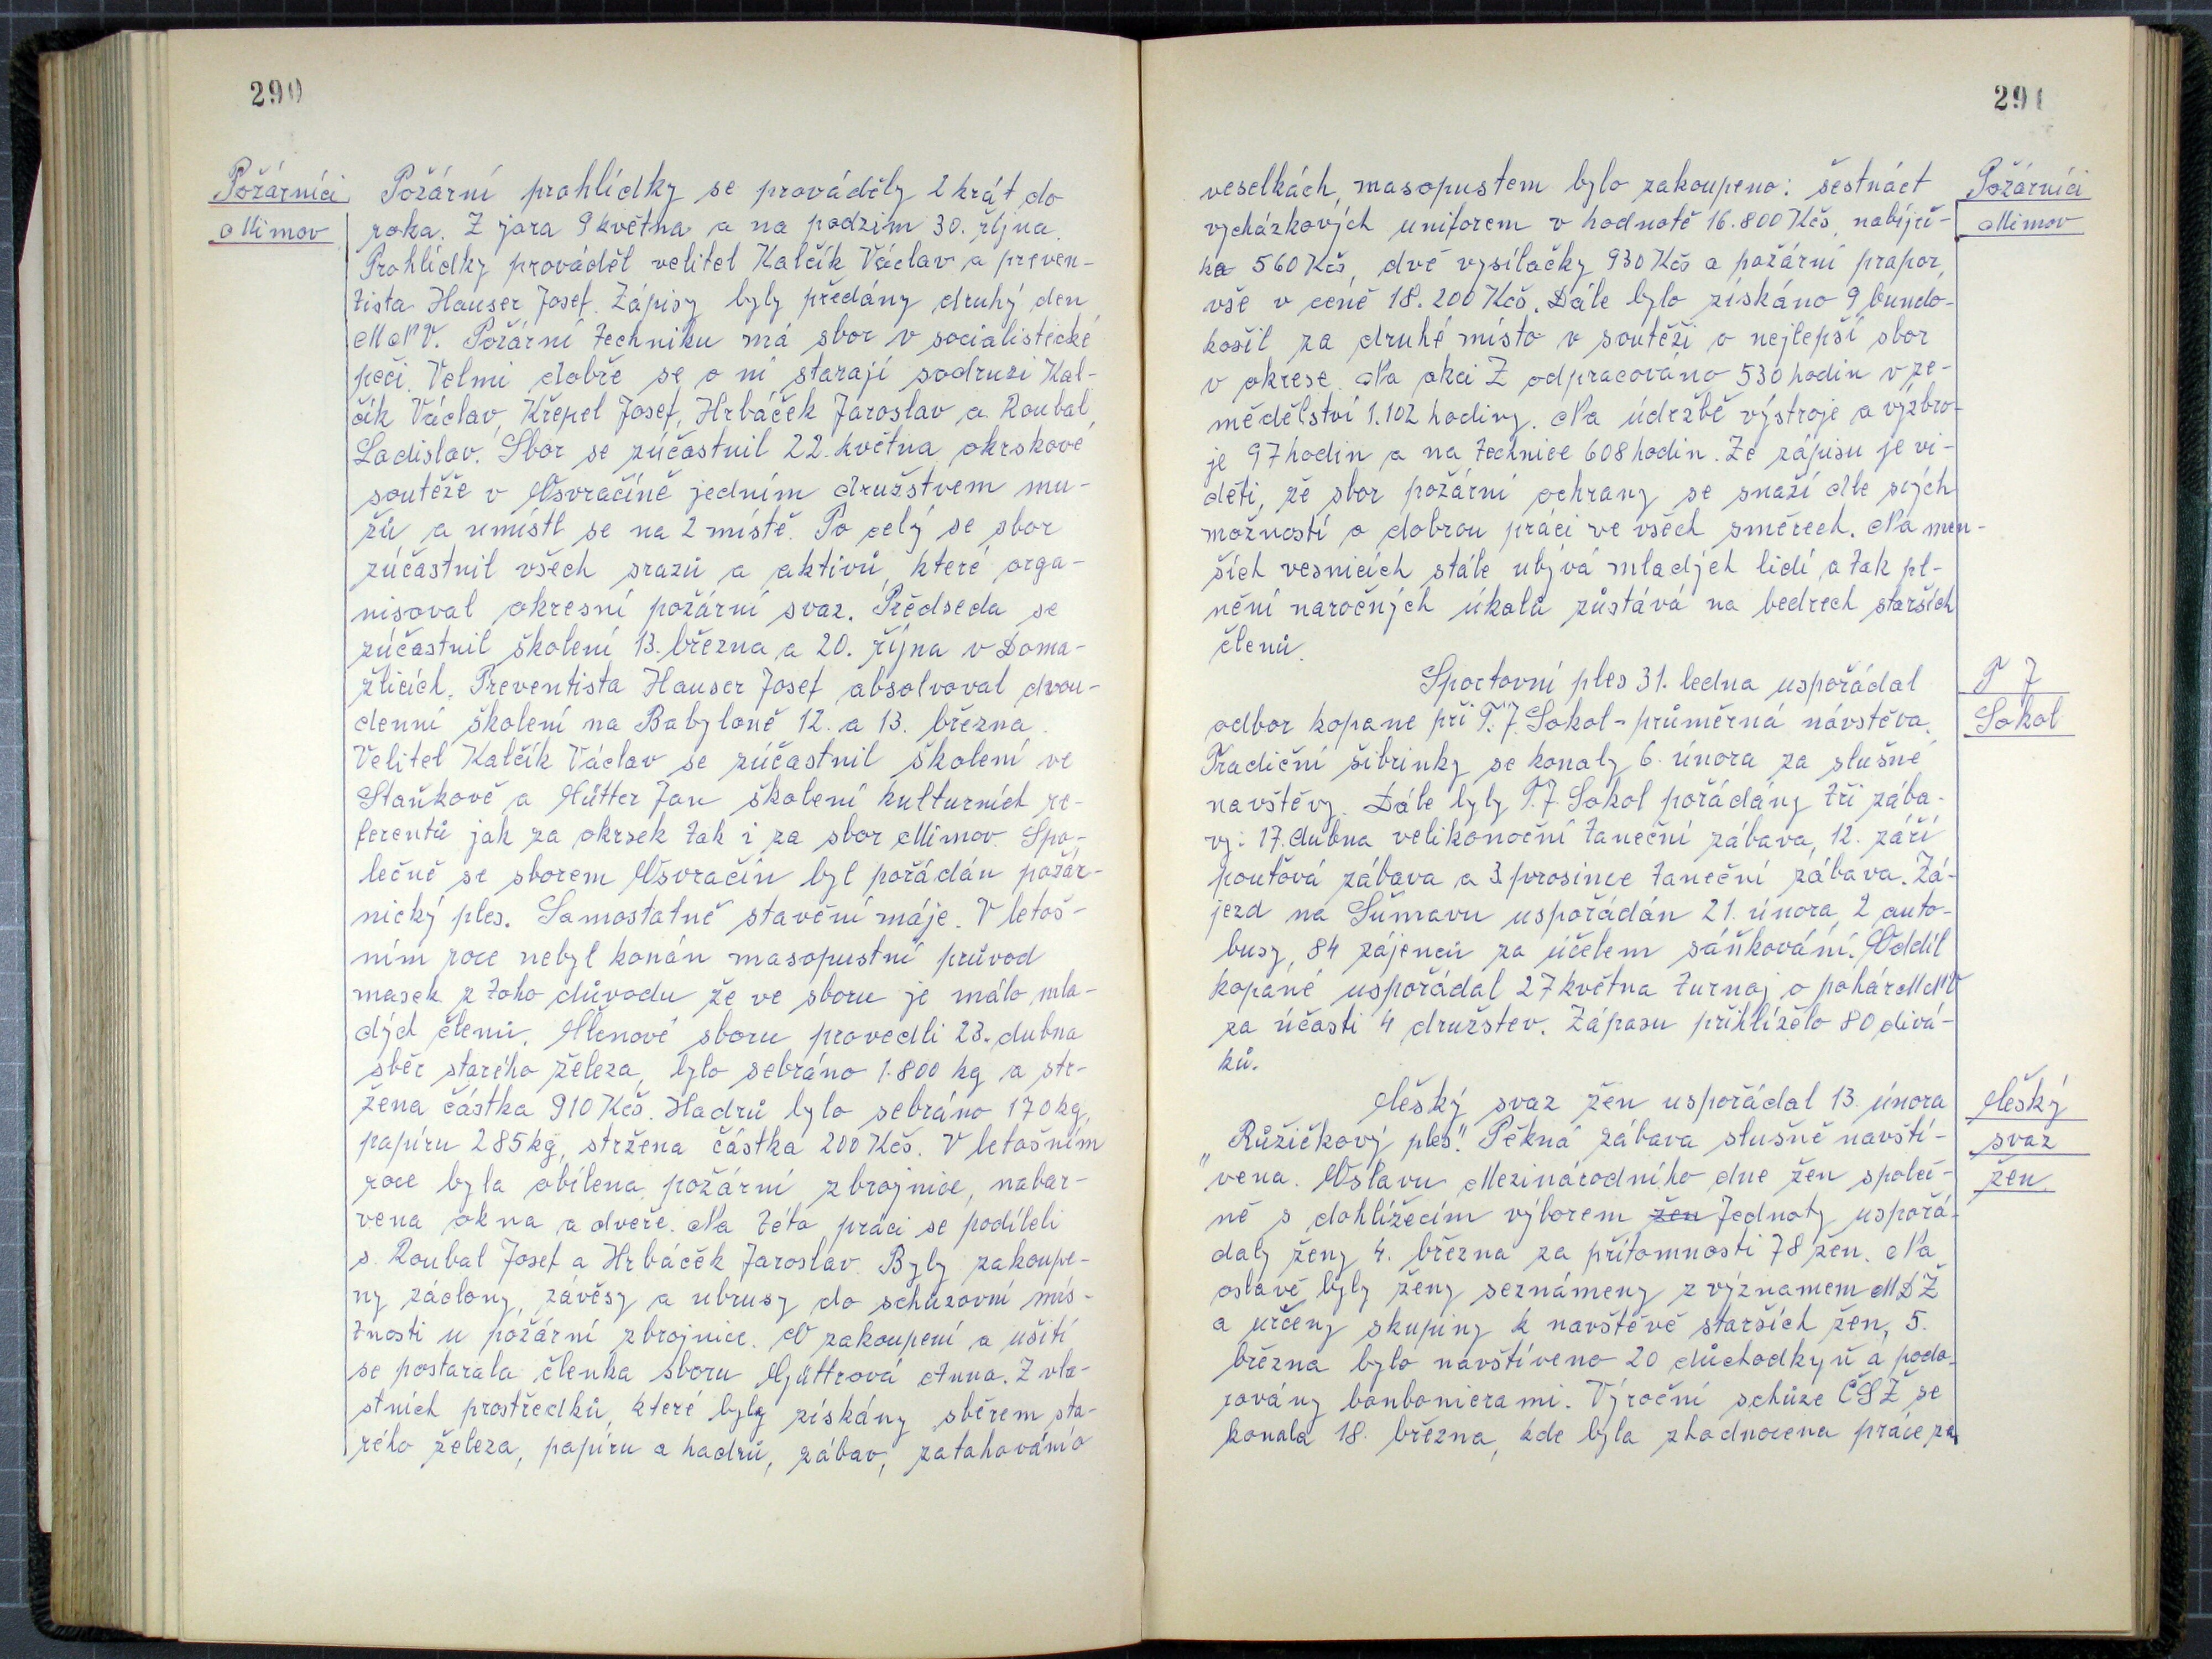 290
Požárníci
Mimov
Požární prohlídky se prováděly 2 krát do
roka. Z jara 9 května a na podzim 30. října.
Prohlídky prováděl velitel Kalčík Václav a preven-
tista Hauser Josef. Zápisy byly předány druhý den
MNV. Požární techniku má sbor v socialistické
péči. Velmi dobře se o ni starají soudruzi Kal-
čík Václav, Křepel Josef, Hrbáček Jaroslav a Roubal
Ladislav. Sbor se zúčastnil 22. května okrskové
soutěže v Osvračíně jedním družstvem mu-
žů a umístl se na 2 místě. Po celý se sbor
zúčastnil všech srazů a aktivů, které orga-
nisoval okresní požární svaz. Předseda se
zúčastnil školení 13. března a 20. října v Doma-
žlicích. Preventista Hauser Josef absolvoval dvou-
denní školení na Babyloně 12. a 13. března.
Velitel Kalčík Václav se zúčastnil školení ve
Staňkově a Jan školení kulturních re-
ferentů jak za okrsek tak i za sbor Mimov. Spo-
lečně se sborem Osvračín byl pořádán požár-
nický ples. Samostatně stavění máje. V letoš-
ním roce nebyl konán masopustní průvod
masek z toho důvodu že ve sboru je málo mla-
dých členů. Členové sboru provedli 23. dubna
sběr starého železa, bylo sebráno 1.800 kg a str-
žena částka 910 Kčs. Hadrů bylo sebráno 170 kg,
papíru 285 kg, stržena částka 200 Kčs. V letošním
roce byla obílena požární zbrojnice, nabar-
vena okna a dveře. Na této práci se podíleli
s. Roubal Josef a Hrbáček Jaroslav. Byly zakoupe-
ny záclony, závěsy a ubrusy do schůzovní mís-
tnosti u požární zbrojnice. O zakoupení a ušití
se postarala členka sboru Anna. Z vla-
stních prostředků, které byly získány sběrem sta-
rého železa, papíru a hadrů, zábav, zatahování o
291
veselkách, masopustem bylo zakoupeno: šestnáct
vycházkových uniforem v hodnotě 16.800 Kčs, nabíječ-
ka 560 Kčs, dvě vysílačky 930 Kčs a požární prapor,
vše v ceně 18.200 Kčs. Dále bylo získáno 9 bundo-
košil za druhé místo v soutěži o nejlepší sbor
v okrese. Na akci Z odpracováno 530 hodin v ze-
mědělství 1.102 hodiny. Na údržbě výstroje a výzbro-
je 97 hodin a na technice 608 hodin. Ze zápisu je vi-
děti, že sbor požární ochrany se snaží dle svých
možností o dobrou práci ve všech směrech. Na men-
ších vesnicích stále ubývá mladých lidí a tak pl-
nění naročných úkolů zůstává na bedrech starších
členů.
Požárníci
Mimov
Sportovní ples 31. ledna uspořádal
odbor kopane při T.J. Sokol - průměrná návstěva.
Tradiční šibrinky se konaly 6. února za slušné
navštěvy. Dále byly T.J. Sokol pořádány tři zába-
vy: 17. dubna velikonoční taneční zábava, 12. září
pouťová zábava a 3 prosince taneční zábava. Zá-
jezd na Šumavu uspořádán 21. února, 2 auto-
busy, 84 zájenců za účelem sáňkování. Oddíl
kopané uspořádal 27 května turnaj o pohár MNV
za účasti 4 družstev. Zápasu přihlíželo 80 divá-
ků.
T J
Sokol
Český svaz žen uspořádal 13. února
„Růžičkový ples". Pěkná zábava slušně navští-
vena. Oslavu Mezinárodního dne žen společ-
ně s dohlížecím výborem žen Jednoty uspořá-
daly ženy 4. března za přítomnosti 78 žen. Na
oslavě byly ženy seznámeny z významem MDŽ
a určeny skupiny k navštěvě starších žen, 5.
března bylo navštíveno 20 důchodkyň a poda-
rovány bonbonierami. Výroční schůze ČSŽ se
konala 18. března, kde byla zhodnocena práce za
Český
svaz
žen